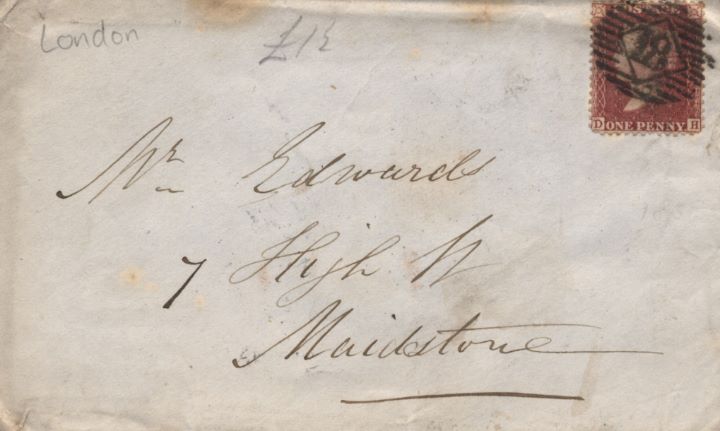 London
£1½
Mr Edwards
7 High St
Maidstone
D ONE PENNY H